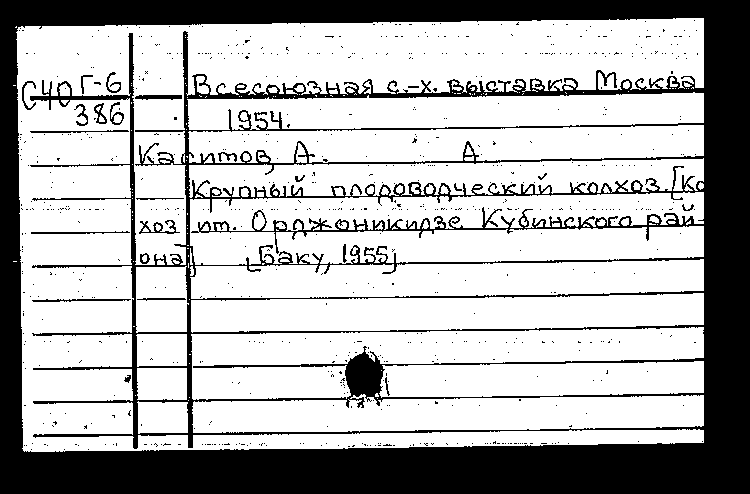 С40 Г-6 Всесоюзная с.-х. выставка Москва
386 1954.
Касимов, А. А
Крупный плодоводческий колхоз. [Ко
хоз им. Орджоникидзе Кубинского рай-
она]. [Баку, 1955]